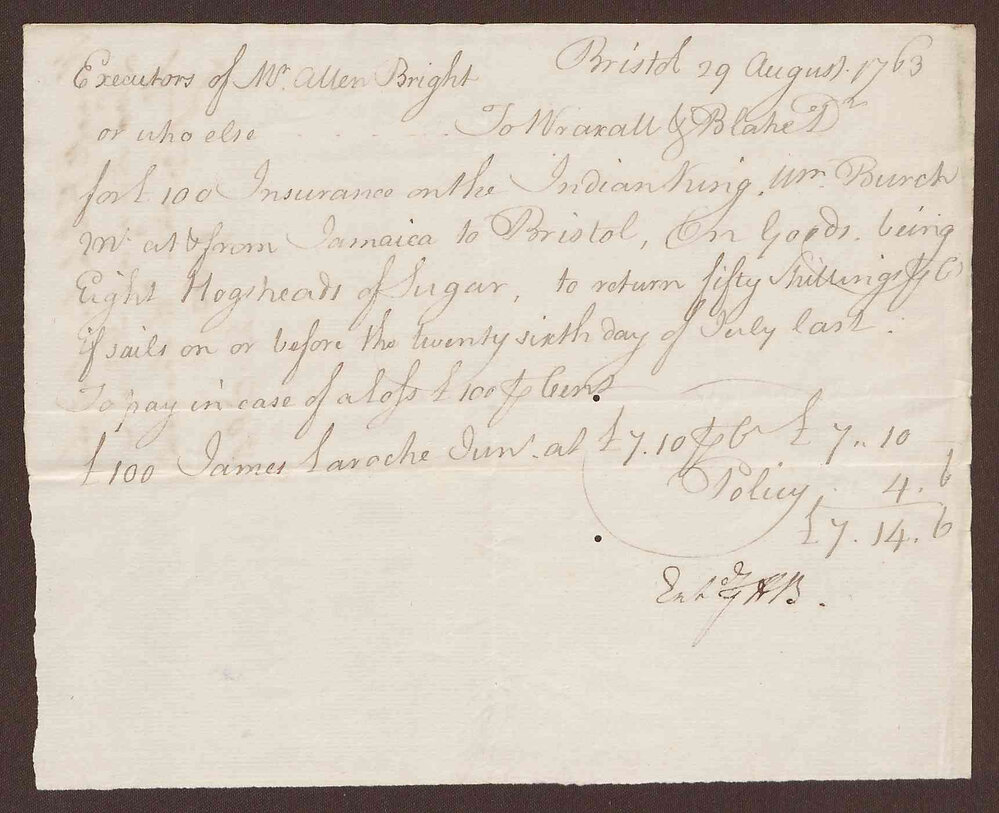 Bristol 29 August. 1763
Executors of Mr. Allen Bright
or who else . . . . . To Wraxall & Blake Dr
for £ 100 Insurance on the Indian King. Wm. Burch
Mr. at & from Jamaica to Bristol, On Goods. being
Eight Hogsheads of Sugar, to return fifty Shillings ⅌ Ct
if sails on or before the twenty sixth day of July last.
To pay in case of a loss £ 100 ⅌ Cent
£100 James Laroche Junr. at £7.10 ⅌ Ct £ 7 „ 10
Policy . 4 . 6
£7 . 14 . 6
HB.